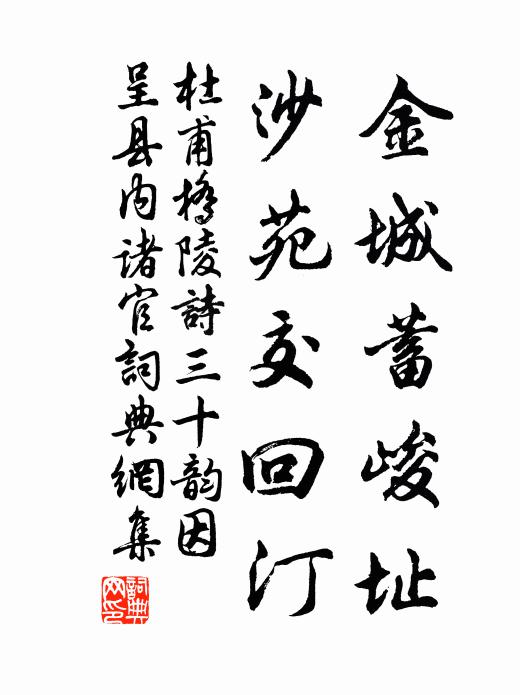 金城蓄峻址
沙苑交回汀
杜甫橋陵詩三十韵因
呈县内诸官詞典網集
詞典網印